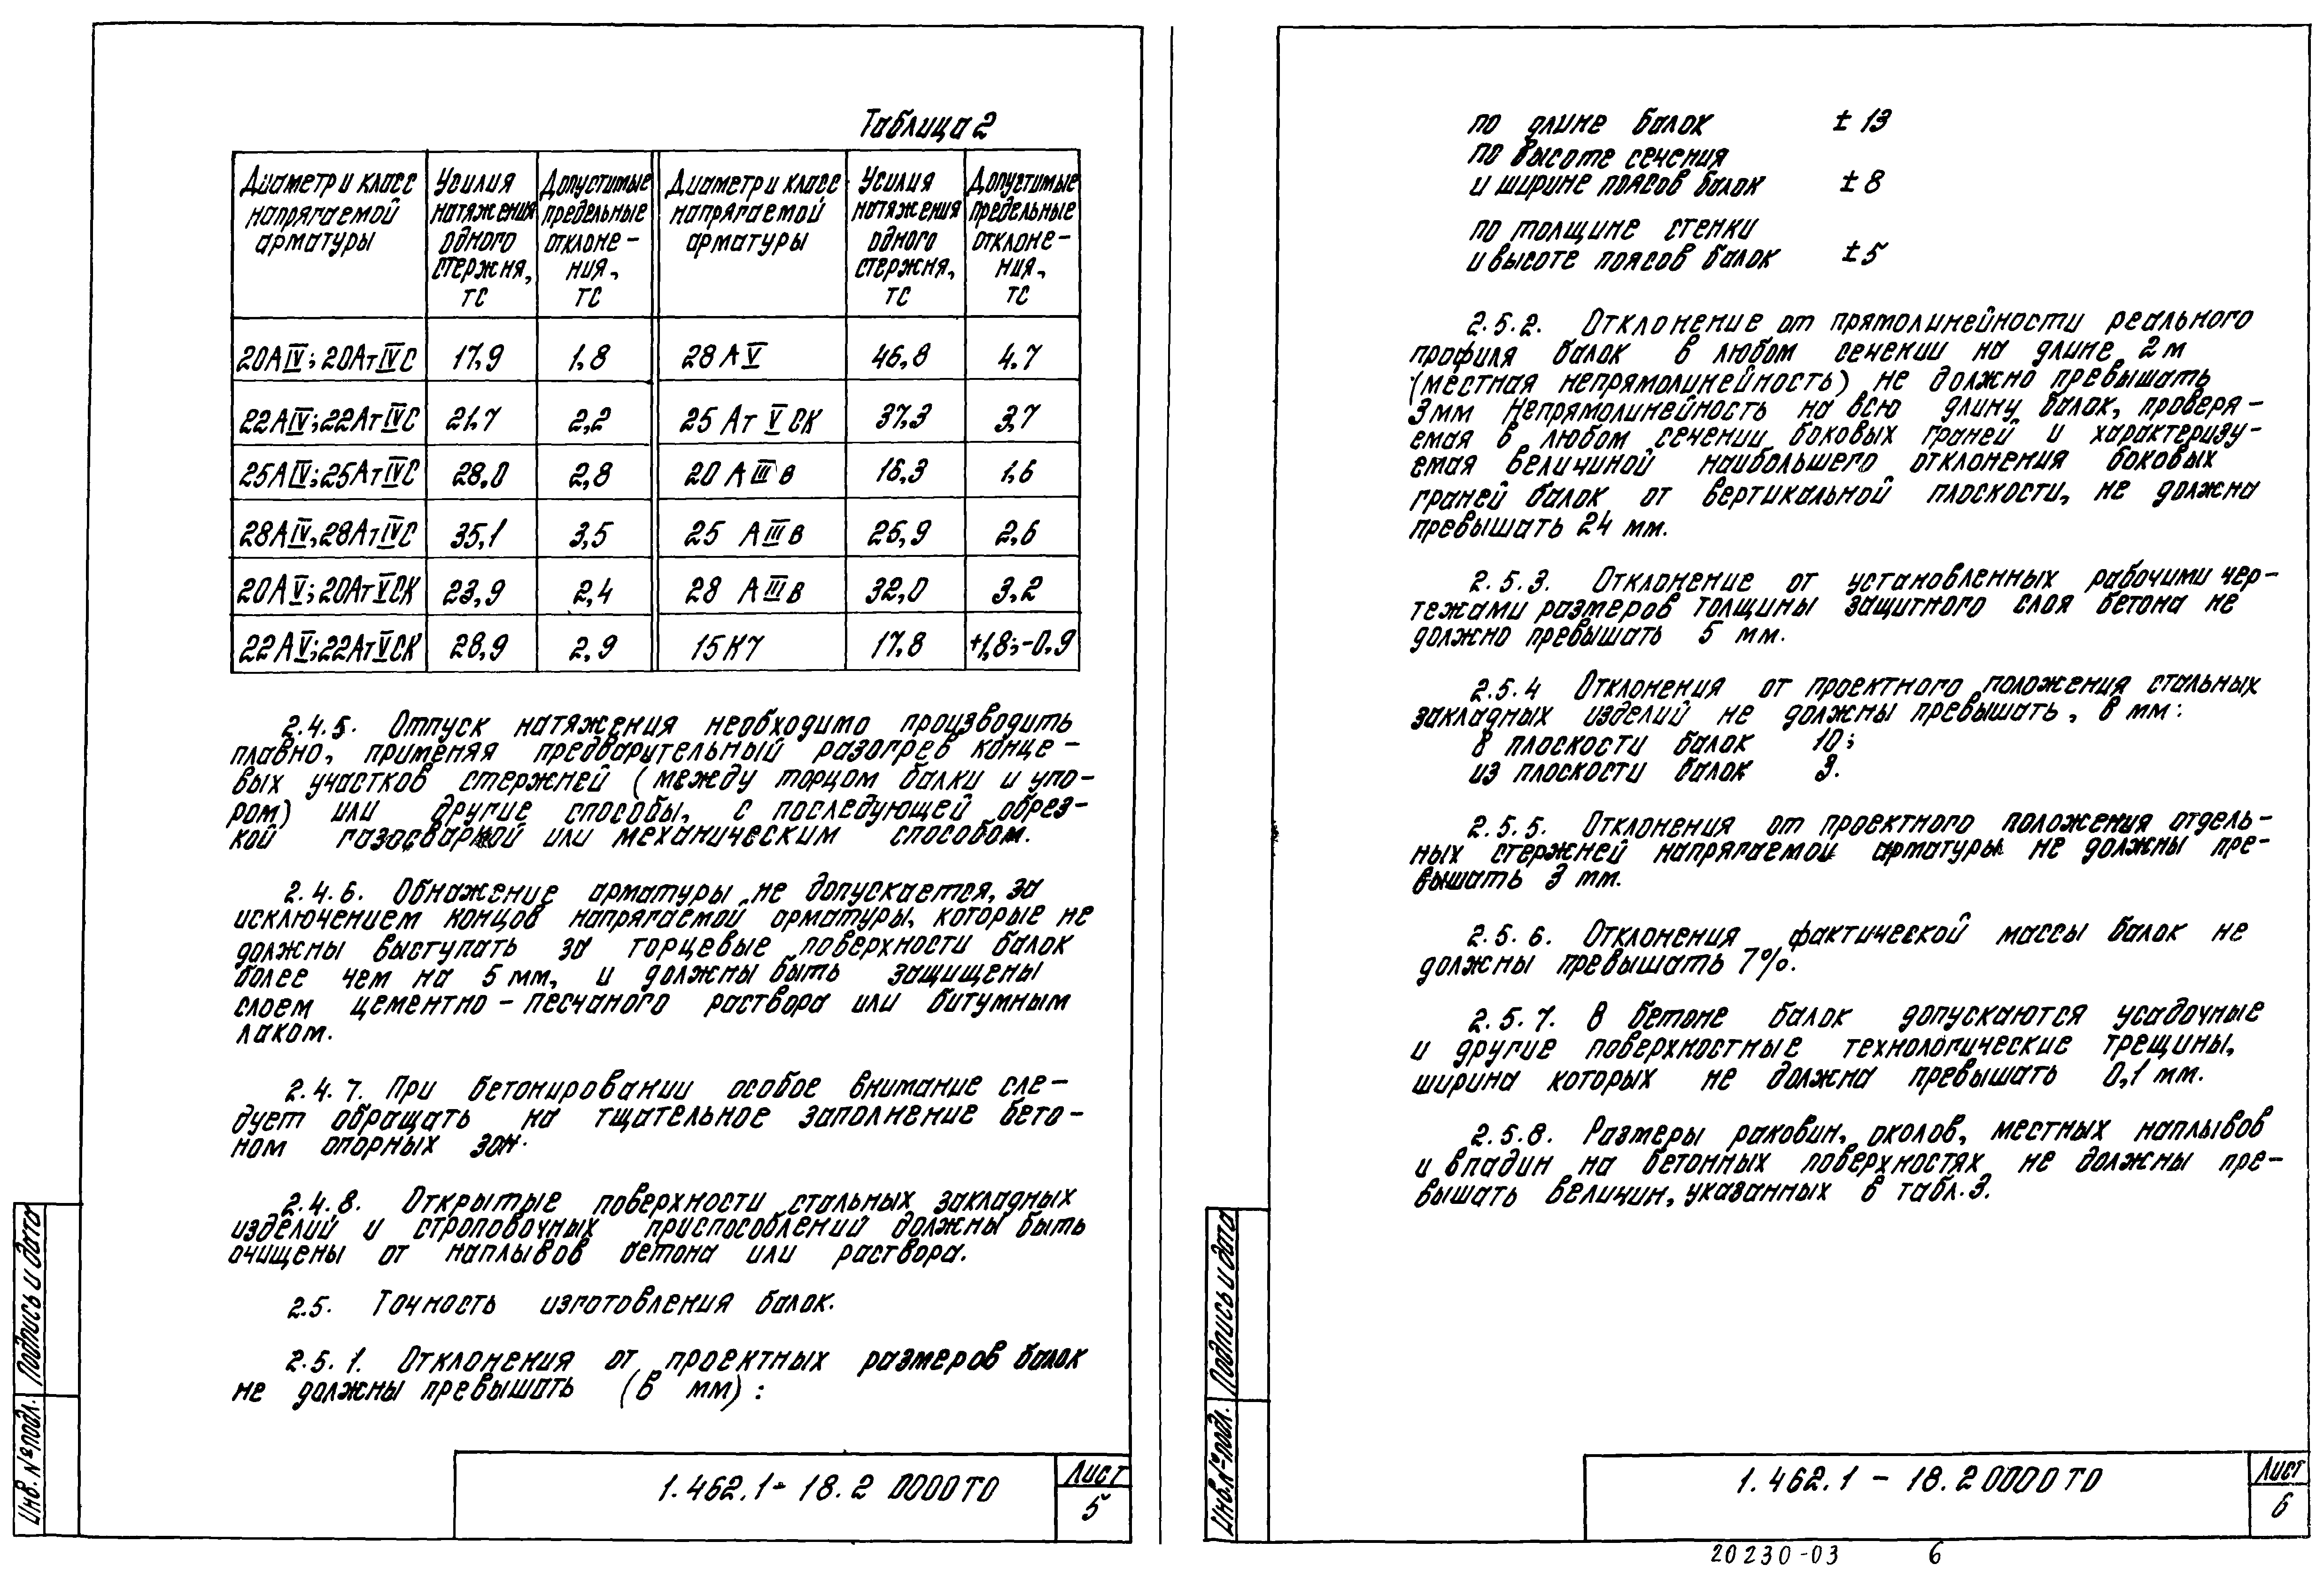 Таблица 2
Диаметр и класс напрягаемой арматуры | Усилия натяжения одного стержня, тс | Допустимые предельные отклоне-ния, тс | Диаметр и класс напрягаемой арматуры | Усилия натяжения одного стержня, тс | Допустимые предельные отклоне-ния, тс
20АIV; 20АтIVС | 17,9 | 1,8 | 28 АV | 46,8 | 4,7
22АIV; 22АтIVС | 21,7 | 2,2 | 25 Ат V СК | 37,3 | 3,7
25АIV; 25АтIVС | 28,0 | 2,8 | 20 АIIIв | 16,3 | 1,6
28АIV, 28АтIVС | 35,1 | 3,5 | 25 АIIIв | 26,9 | 2,6
20АV; 20АтVСК | 23,9 | 2,4 | 28 АIIIв | 32,0 | 3,2
22АV; 22АтVСК | 28,9 | 2,9 | 15К7 | 17,8 | +1,8; -0,9
2.4.5. Отпуск натяжения необходимо производить
плавно, применяя предварительный разогрев конце-
вых участков стержней (между торцом балки и упо-
ром) или другие способы, с последующей обрез-
кой газосваркой или механическим способом.
2.4.6. Обнажение арматуры не допускается, за
исключением концов напрягаемой арматуры, которые не
должны выступать за торцевые поверхности балок
более чем на 5 мм, и должны быть защищены
слоем цементно-песчаного раствора или битумным
лаком.
2.4.7. При бетонировании особое внимание сле-
дует обращать на тщательное заполнение бето-
ном опорных зон.
2.4.8. Открытые поверхности стальных закладных
изделий и строповочных приспособлений должны быть
очищены от наплывов бетона или раствора.
2.5. Точность изготовления балок.
2.5.1. Отклонения от проектных размеров балок
не должны превышать (в мм):
Подпись и дата
Инв. № подл.
1.462.1-18.2 0000ТО
Лист
5
по длине балок ± 13
по высоте сечения
и ширине поясов балок ± 8
по толщине стенки
и высоте поясов балок ± 5
2.5.2. Отклонение от прямолинейности реального
профиля балок в любом сечении на длине 2 м
(местная непрямолинейность) не должно превышать
3мм Непрямолинейность на всю длину балок, проверя-
емая в любом сечении боковых граней и характеризу-
емая величиной наибольшего отклонения боковых
граней балок от вертикальной плоскости, не должна
превышать 24 мм.
2.5.3. Отклонение от установленных рабочими чер-
тежами размеров толщины защитного слоя бетона не
должно превышать 5 мм.
2.5.4 Отклонения от проектного положения стальных
закладных изделий не должны превышать, в мм:
в плоскости балок 10;
из плоскости балок 3.
2.5.5. Отклонения от проектного положения отдель-
ных стержней напрягаемой арматуры не должны пре-
вышать 3 мм.
2.5.6. Отклонения фактической массы балок не
должны превышать 7%.
2.5.7. В бетоне балок допускаются усадочные
и другие поверхностные технологические трещины,
ширина которых не должна превышать 0,1 мм.
2.5.8. Размеры раковин, околов, местных наплывов
и впадин на бетонных поверхностях не должны пре-
вышать величин, указанных в табл.3.
Подпись и дата
Инв. № подл.
1.462.1 - 18.2 0000 ТО
Лист
6
20230-03 6